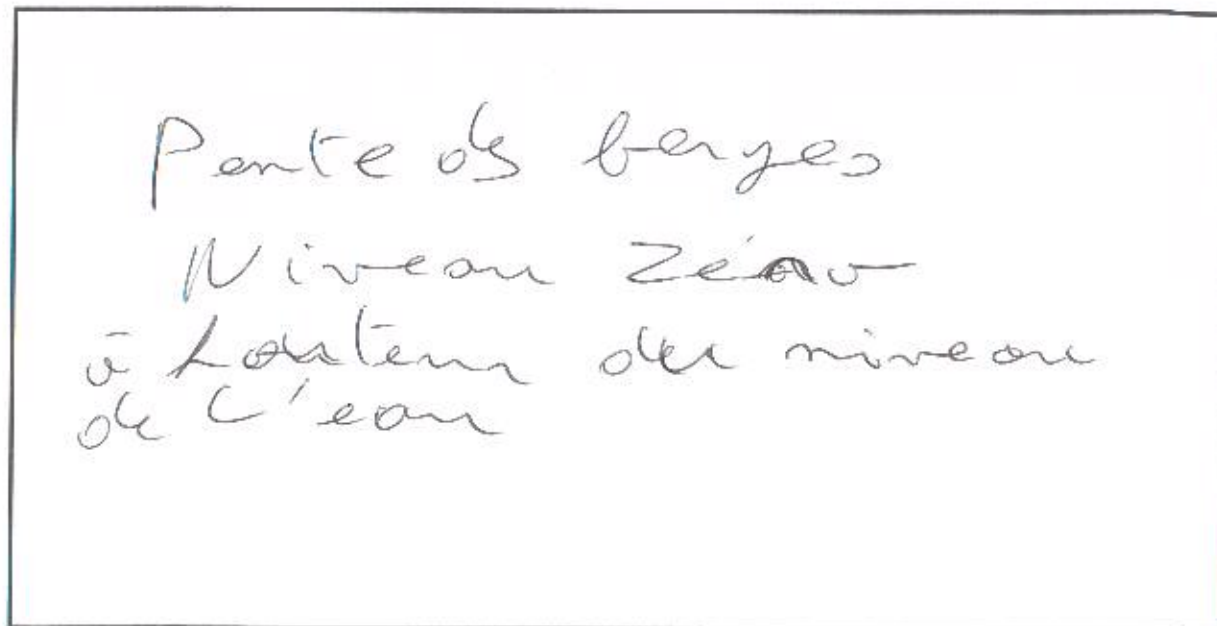 Pente des berges
Niveau zéro
à hauteur du niveau
de l'eau